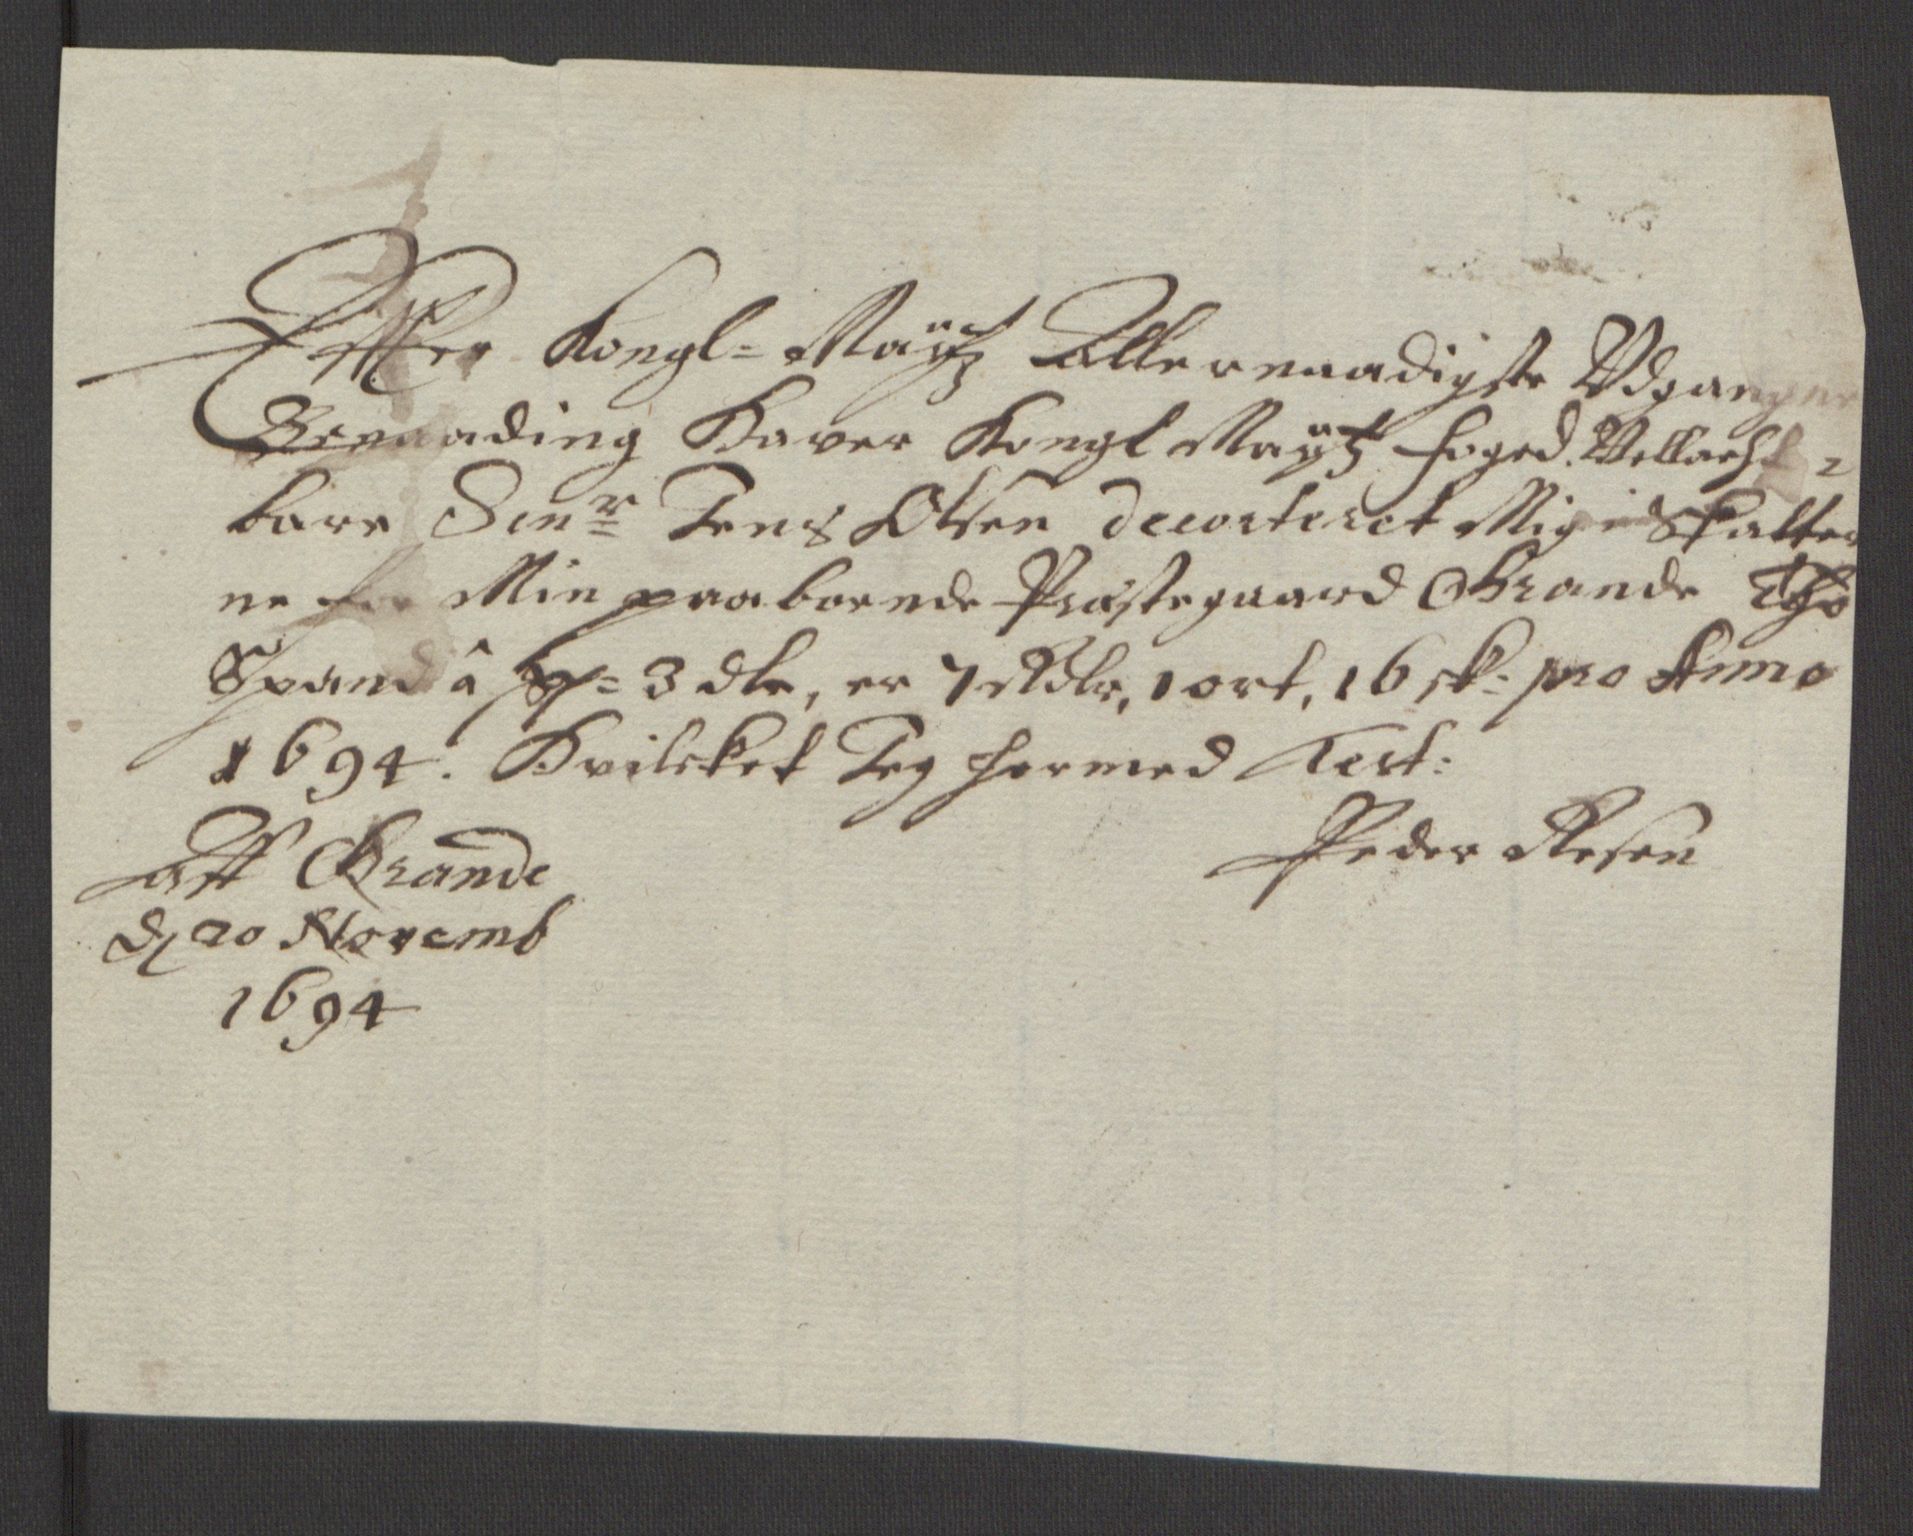 Effter Kongl= Maÿtz Allernaadigste Udgangne
Benaading Haver Kongl Maÿtz foged. Vellacht=
bare Sinr Jens Olsen decorteret Mig i Skatter
ne for Min paaboende Præstegaard Grande Tho
Spand â Sp= 3 dlr, er 7 Rdlr, 1 ort, 16 sk: pro Anno
1694. Hvilcket Jeg hermed Test:
Peder Resen
Aff Grande
d/ 20 Novemb
1694